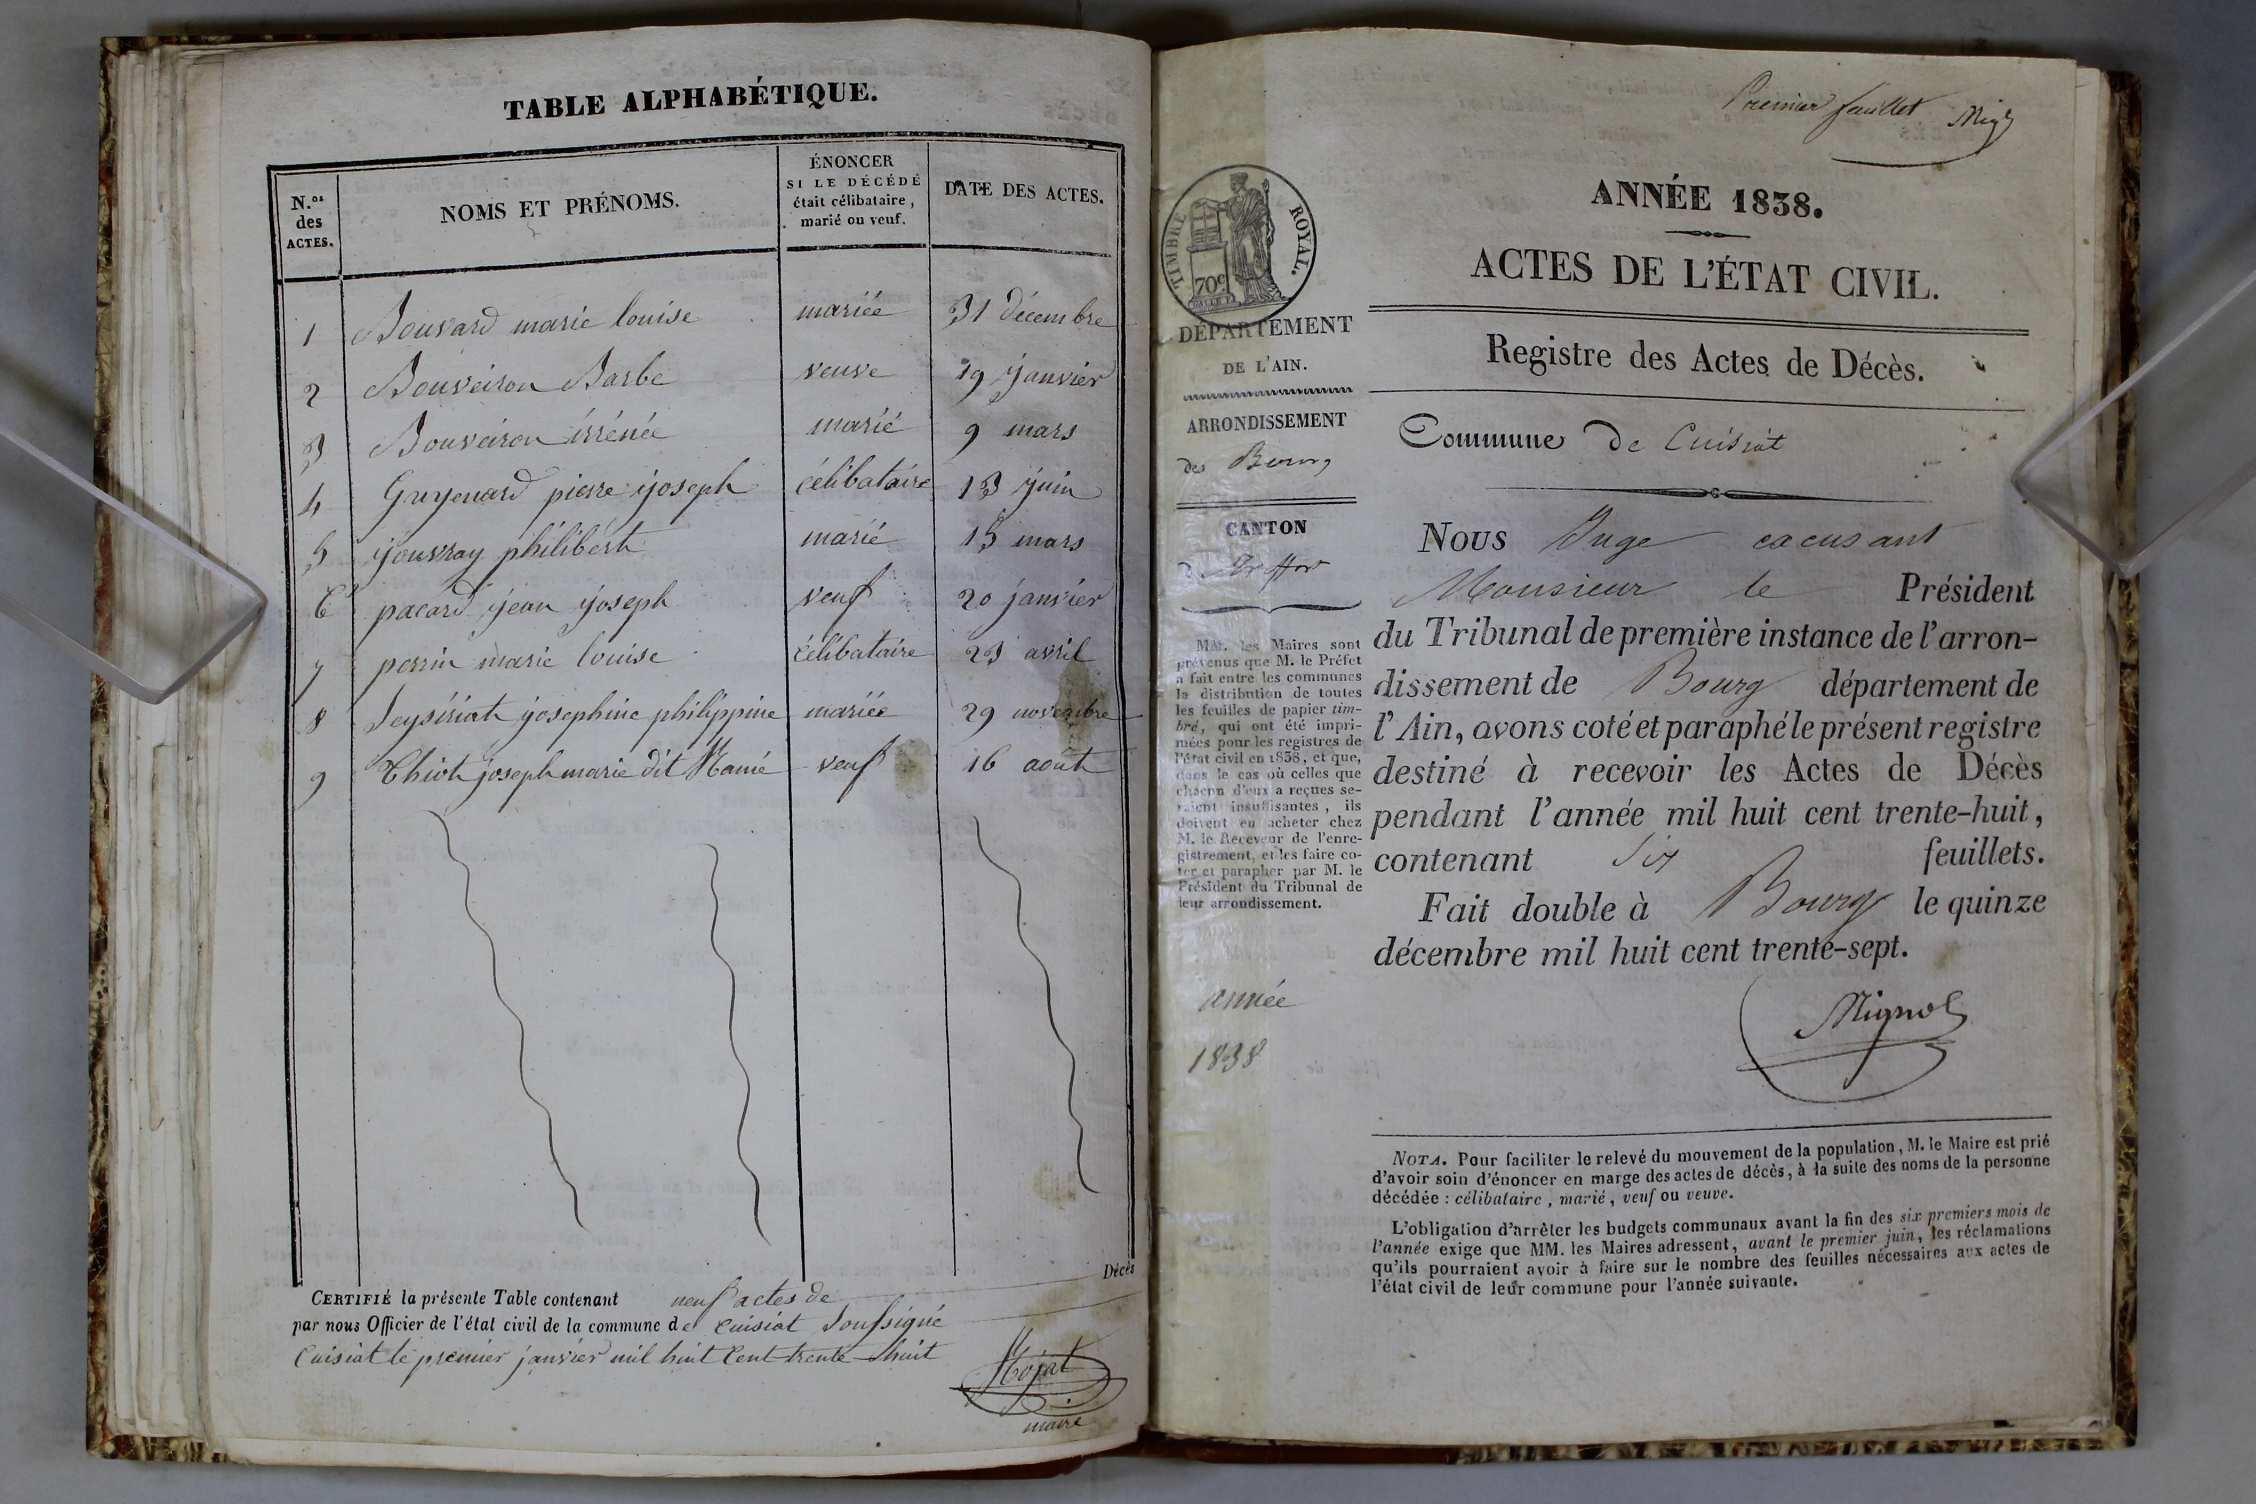 TABLE ALPHABÉTIQUE.
N.os des ACTES.
NOMS ET PRÉNOMS.
ÉNONCER SI LE DÉCÉDÉ était célibataire, marié ou veuf.
DATE DES ACTES.
1 Bouvard marie louise mariée 31 décembre
2 Bouveiron Barbe veuve 19 janvier
3 Bouveiron irrénée marié 9 mars
4 Guyenard pierre joseph célibataire 13 juin
5 jouvray philibert marié 15 mars
6 pacard jean joseph veuf 20 janvier
7 perrin marie louise célibataire 23 avril
8 Seysiriat josephine philippine mariée 29 novembre
9 Thiot joseph marie dit veuf 16 août
Décès
CERTIFIÉ la présente Table contenant neuf actes de
par nous Officier de l'état civil de la commune de Cuisiat soussigné
Cuisiat le premier janvier mil huit Cent trente huit
maire
Premier feuillet
TIMBRE ROYAL.
70c
DÉPARTEMENT
DE L'AIN.
ARRONDISSEMENT
de Bourg
CANTON
MM. les Maires sont
prévenus que M. le Préfet
a fait entre les communes
la distribution de toutes
les feuilles de papier tim-
bré, qui ont été impri-
mées pour les registres de
l'état civil en 1838, et que,
dans le cas où celles que
chacun d'eux a reçues se-
raient insuffisantes, ils
doivent en acheter chez
M. le Receveur de l'enre-
gistrement, et les faire co-
ter et parapher par M. le
Président du Tribunal de
leur arrondissement.
année
1838
ANNÉE 1838.
ACTES DE L'ÉTAT CIVIL.
Registre des Actes de Décès.
Commune de Cuisiat
NOUS Juge
Monsieur le Président
du Tribunal de première instance de l'arron-
dissement de Bourg département de
l'Ain, avons coté et paraphé le présent registre
destiné à recevoir les Actes de Décès
pendant l'année mil huit cent trente-huit,
contenant Six feuillets.
Fait double à Bourg le quinze
décembre mil huit cent trente-sept.
NOTA. Pour faciliter le relevé du mouvement de la population, M. le Maire est prié
d'avoir soin d'énoncer en marge des actes de décès, à la suite des noms de la personne
décédée : célibataire, marié, veuf ou veuve.
L'obligation d'arrêter les budgets communaux avant la fin des six premiers mois de
l'année exige que MM. les Maires adressent, avant le premier juin, les réclamations
qu'ils pourraient avoir à faire sur le nombre des feuilles nécessaires aux actes de
l'état civil de leur commune pour l'année suivante.